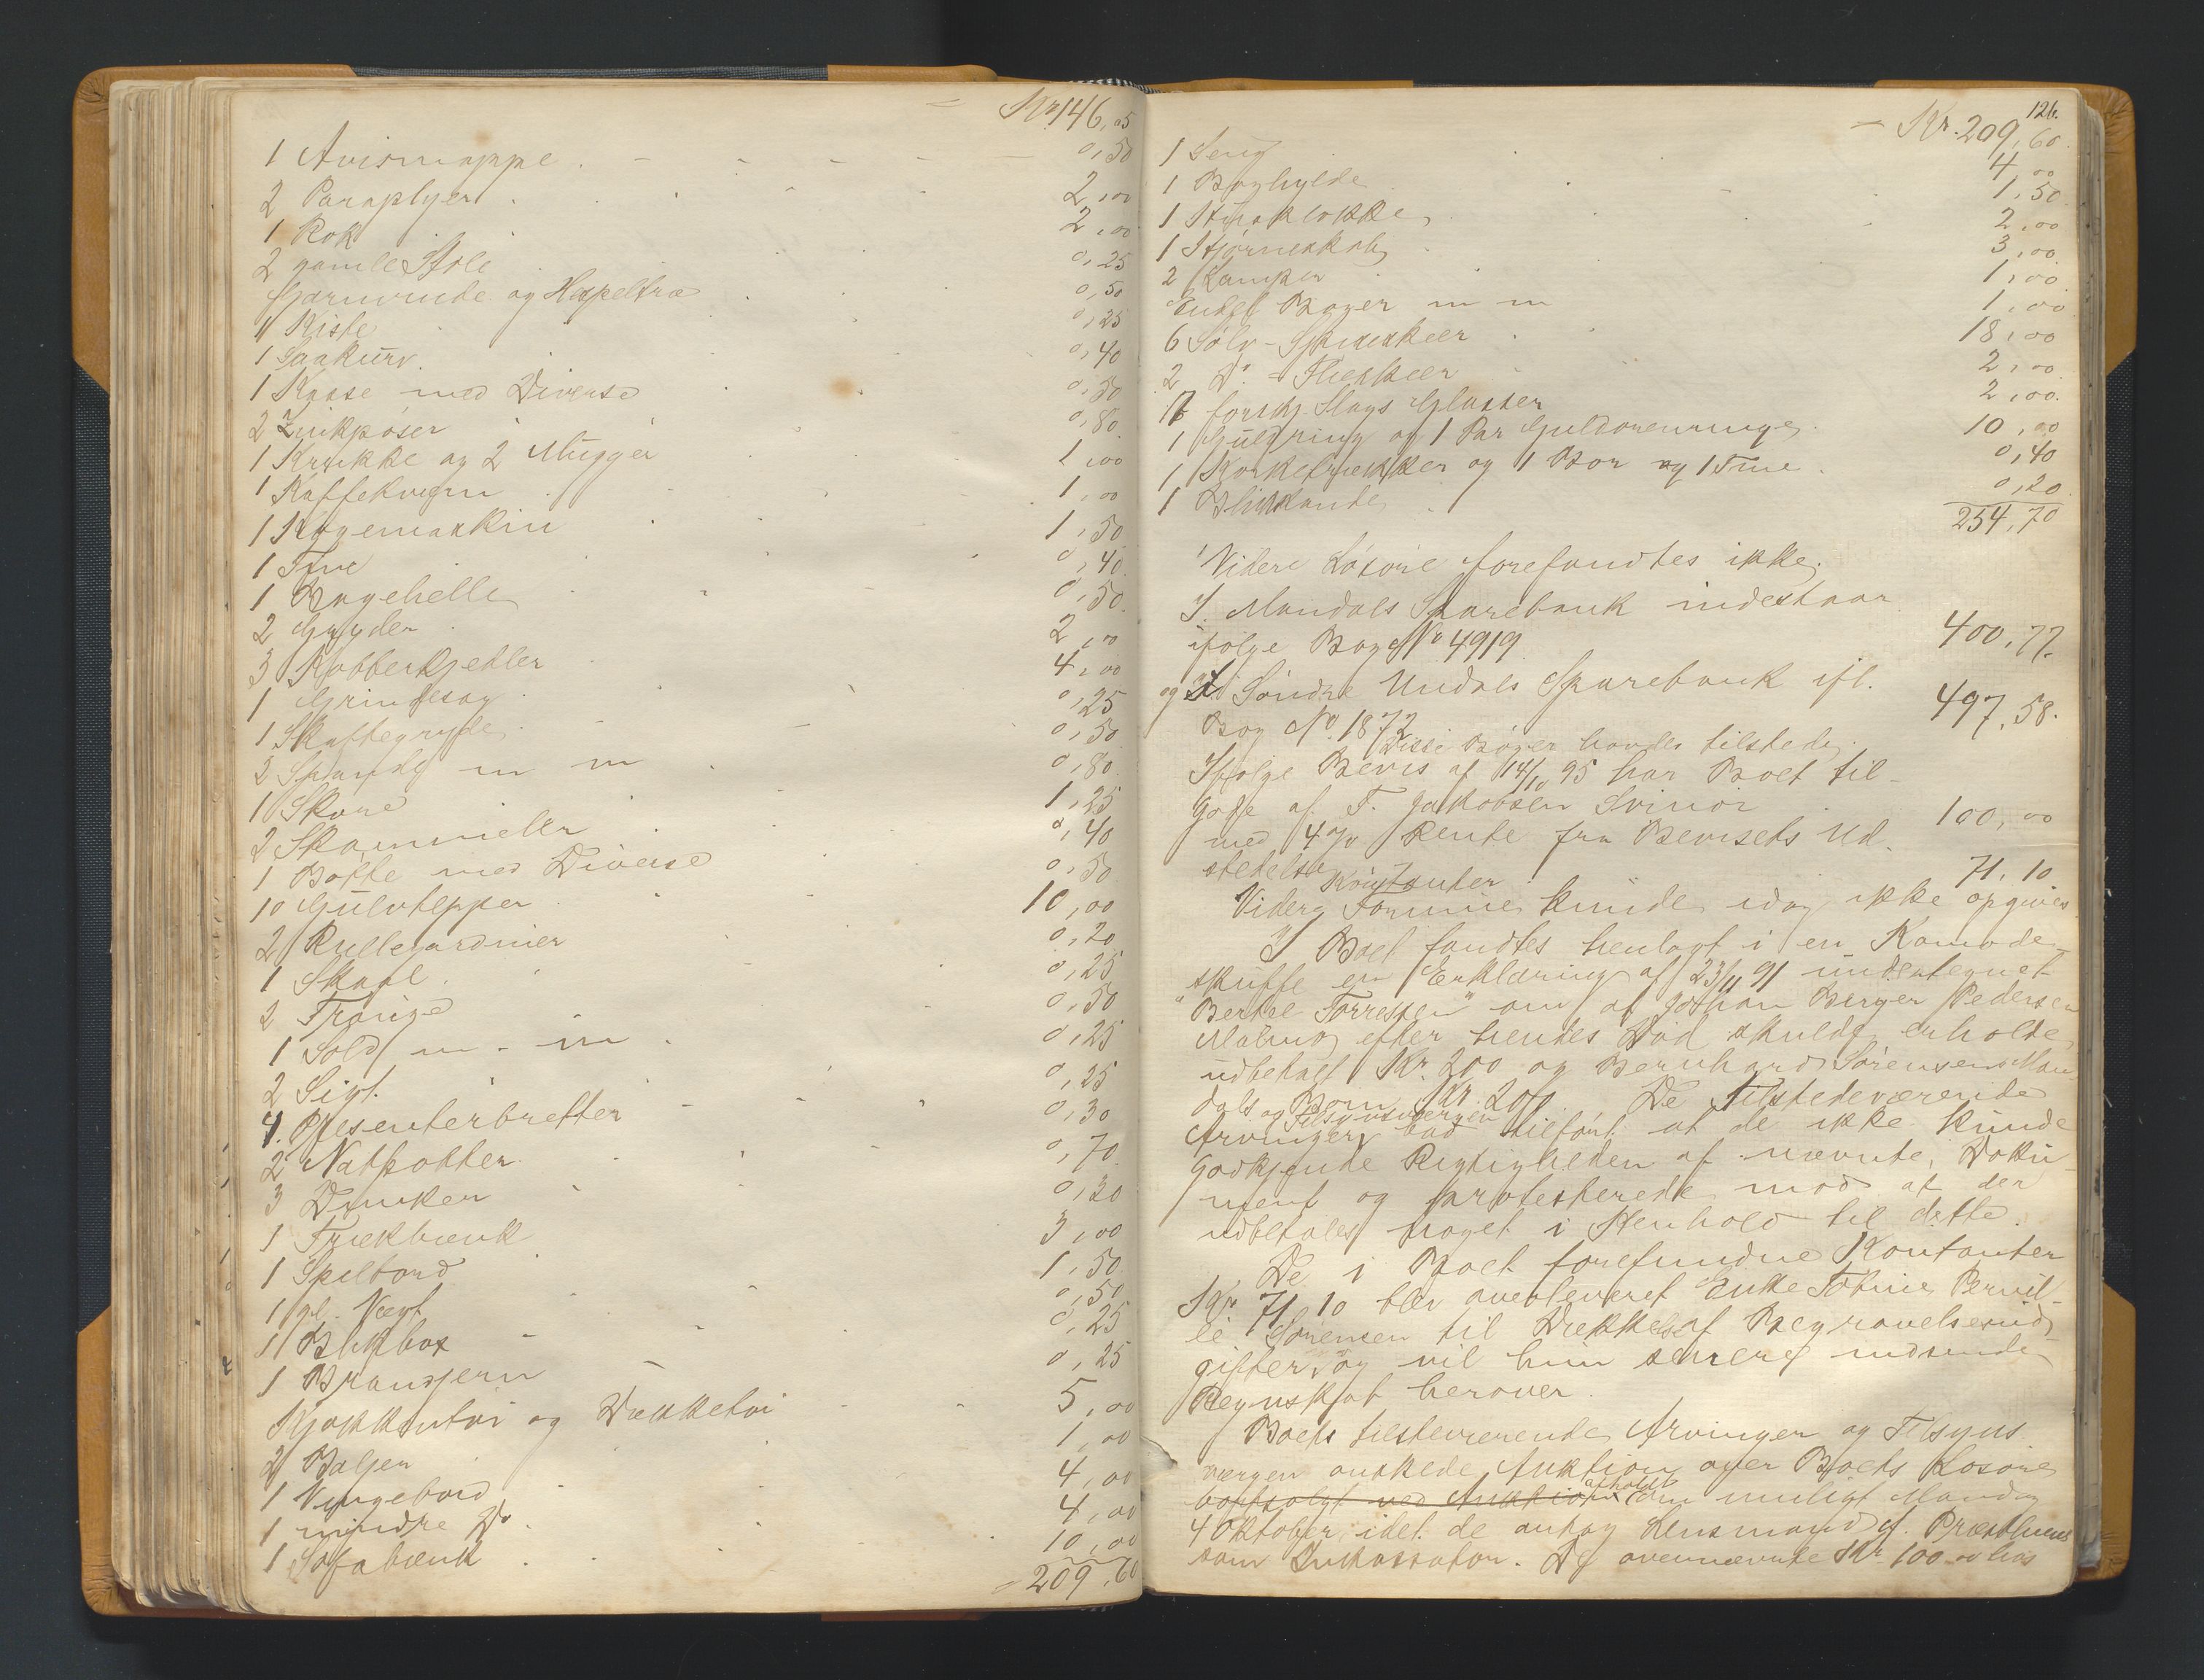 Kr 146,05
1 Avismappe 0,50
2 Paraplyer 2,00
1 Rok 2,00
2 gamle Stole 0,25
Garnvinde og Hespeltræ 0,50
1 Kiste 0,25
1 Saakurv 0,40
1 Kasse med Diverse 0,50
2 Zinkpøser 0,80
1 Krukke og 2 Mugger 1,00
1 Kaffekvern 1,00
1 Kogemaskin 1,50
1 Tine 0,40
1 Bagehelle 0,50
2 Gryder 2,00
3 Kobberkjedler 4,00
1 Grindesag 0,25
1 Skaftegryde 0,50
2 Spande m m 0,80
1 1,25
2 Skammeler 0,40
1 Bøtte med Diverse 0,50
10 Gulvtepper 10,00
2 Rullegardiner 0,20
1 Skaal 0,25
2 Trauge 0,50
1 Sold m. m. 0,25
2 Sigt. 0,25
4. Presenterbretter 0,30
2 Natpotter 0,70
3 Dunker 0,30
1 Trækbænk 3,00
1 Spilbord 1,50
1 gl. Vægt 0,50
1 Blikbox 0,25
1 Brandjern 0,25
Kjøkkentøi og Dækketøi 5,00
2 Baljer 1,00
1 Vingebord 4,00
1 mindre Do 4,00
1 Sofabænk 10,00
= 209,60
126.
Kr. 209,60
1 Seng 4,00
1 Boghylde 1,50
1 Stuaklokke 2,00
1 Hjørneskab 3,00
2 Lamper 1,00
Endel Bøger m m 1,00
6 Sølv-Spiseskeer 18,00
2 Do - Theskeer 2,00
17 forskj. Slags Glasser 2,00
1 Guldring og 1 Par Guldørenringe 10,00
1 Korketrækker og 1 Bor og 1 Tine 0,40
1 Blikkande 0,20
254,70
Videre Løsøre forefandtes ikke.
I Mandals Sparebank indestaar
ifølge Bog No 4919 400,77.
og i Søndre Undals Sparebank ifl.
Bog No 1872 497,58.
Disse Bøger havdes tilstede.
Ifølge Bevis af 14/10 95 har Boet til-
gode af T. Jakobsen Svinør 100,00
med 4 % Rente fra Bevisets Ud-
stedelse
Kontanter 71,10
Videre Formue kunde idag ikke opgives
I Boet fandtes henlagt i en Komode-
skuffe en Erklæring af 23/11 91 undertegnet
"Bertee Torressen" om at Johan Berger Pedersen
Malmø efter hendes Død skulde erholde
udbetalt Kr. 200 og Bernhard Sørensen Man-
dals Børn Kr. 200. De Tilstedeværende
Arvinger og Tilsynsværgen bad tilført at de ikke kunde
godkjende Rigtigheden af nævnte Doku-
ment og protesterede mod at der
udbetales noget i Henhold til dette.
De i Boet forefundne Kontanter
Kr 71,10 blev overleveret Enke Tobine Pernil-
le Sørensen til Dækkelse af Begravelsesud-
gifter og vil hun senere indsende
Regnskab herover.
Boets tilstedeværende Arvinger og Tilsyns
værgen ønskede Auktion over Boets Løsøre
bortsolgt ved Auktion afholdt om muligt Mandag
4 Oktober, idet de antog Lensmand cf. Præsthuus
som Inkassator. De ovennævnte Kr 100.00 hos